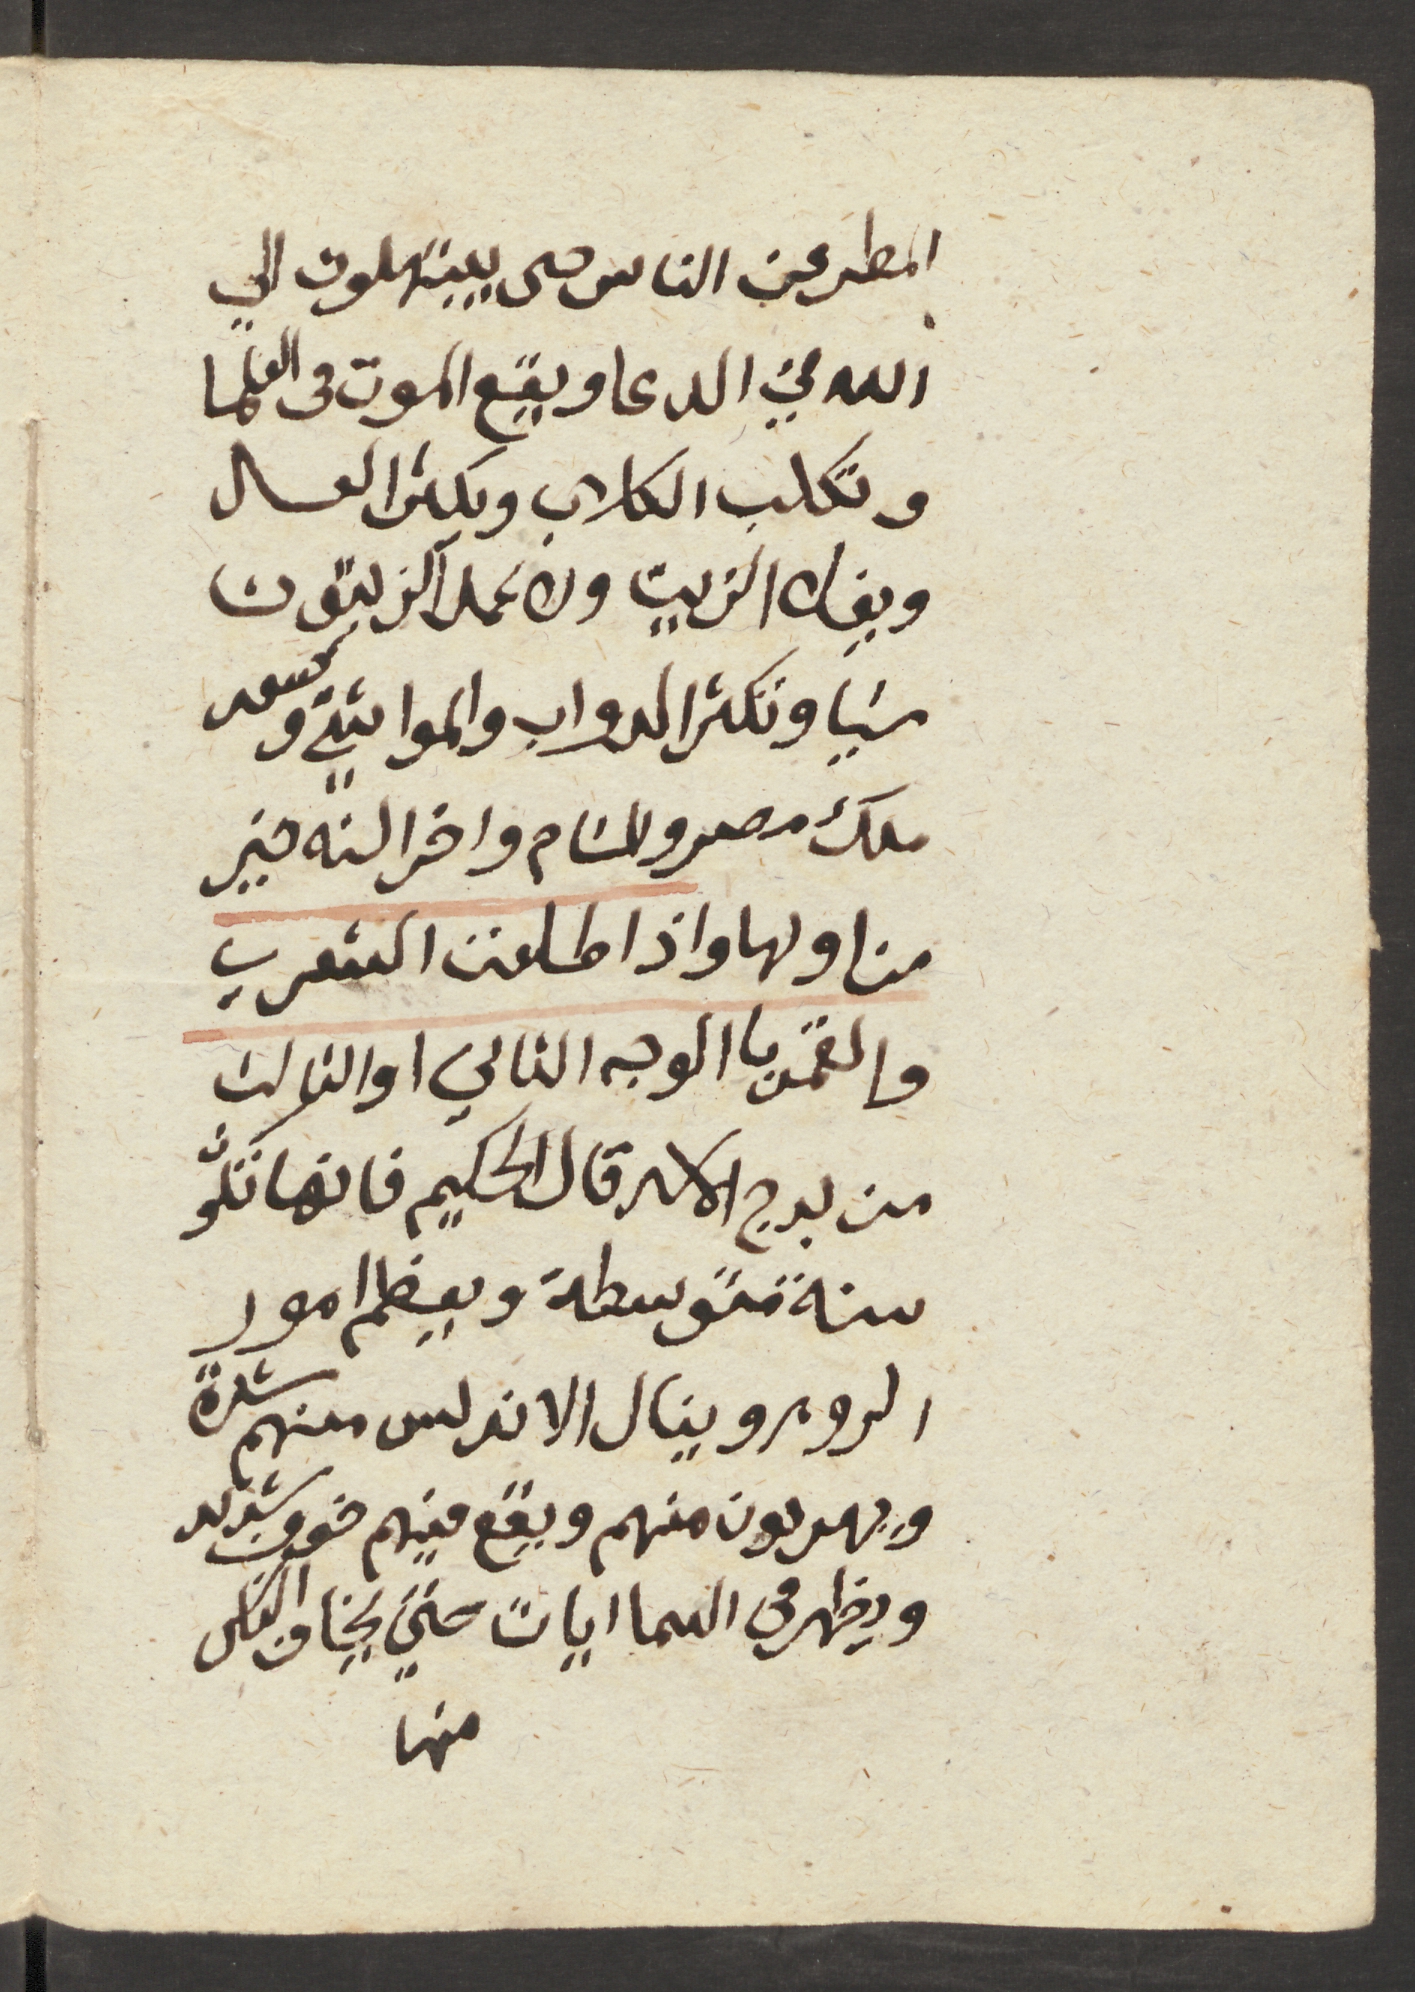 المطر عن الناس حتى يبتهلون الي
الله في الدعا ويقع الموت في العلما
وتكلب الكلاب ويكثر العسال
ويغلا الزيت ولا تحمل الزيتون
شيا وتكثر الدواب والمواشي و
ملك مصر والشام واخر السنه خير
من اولها واذا طلعت الشعري
والقمر با الوجه الثاني او الثالث
من برج الاسد قال الحكيم فانها تكون
سنة متوسطة ويعظم امور
الروم وينال الاندلس منهم شدة
ويهربون منهم ويقع فيهم خوف شديد
ويظهر في السما ايات حتي يخاف الناس
منها